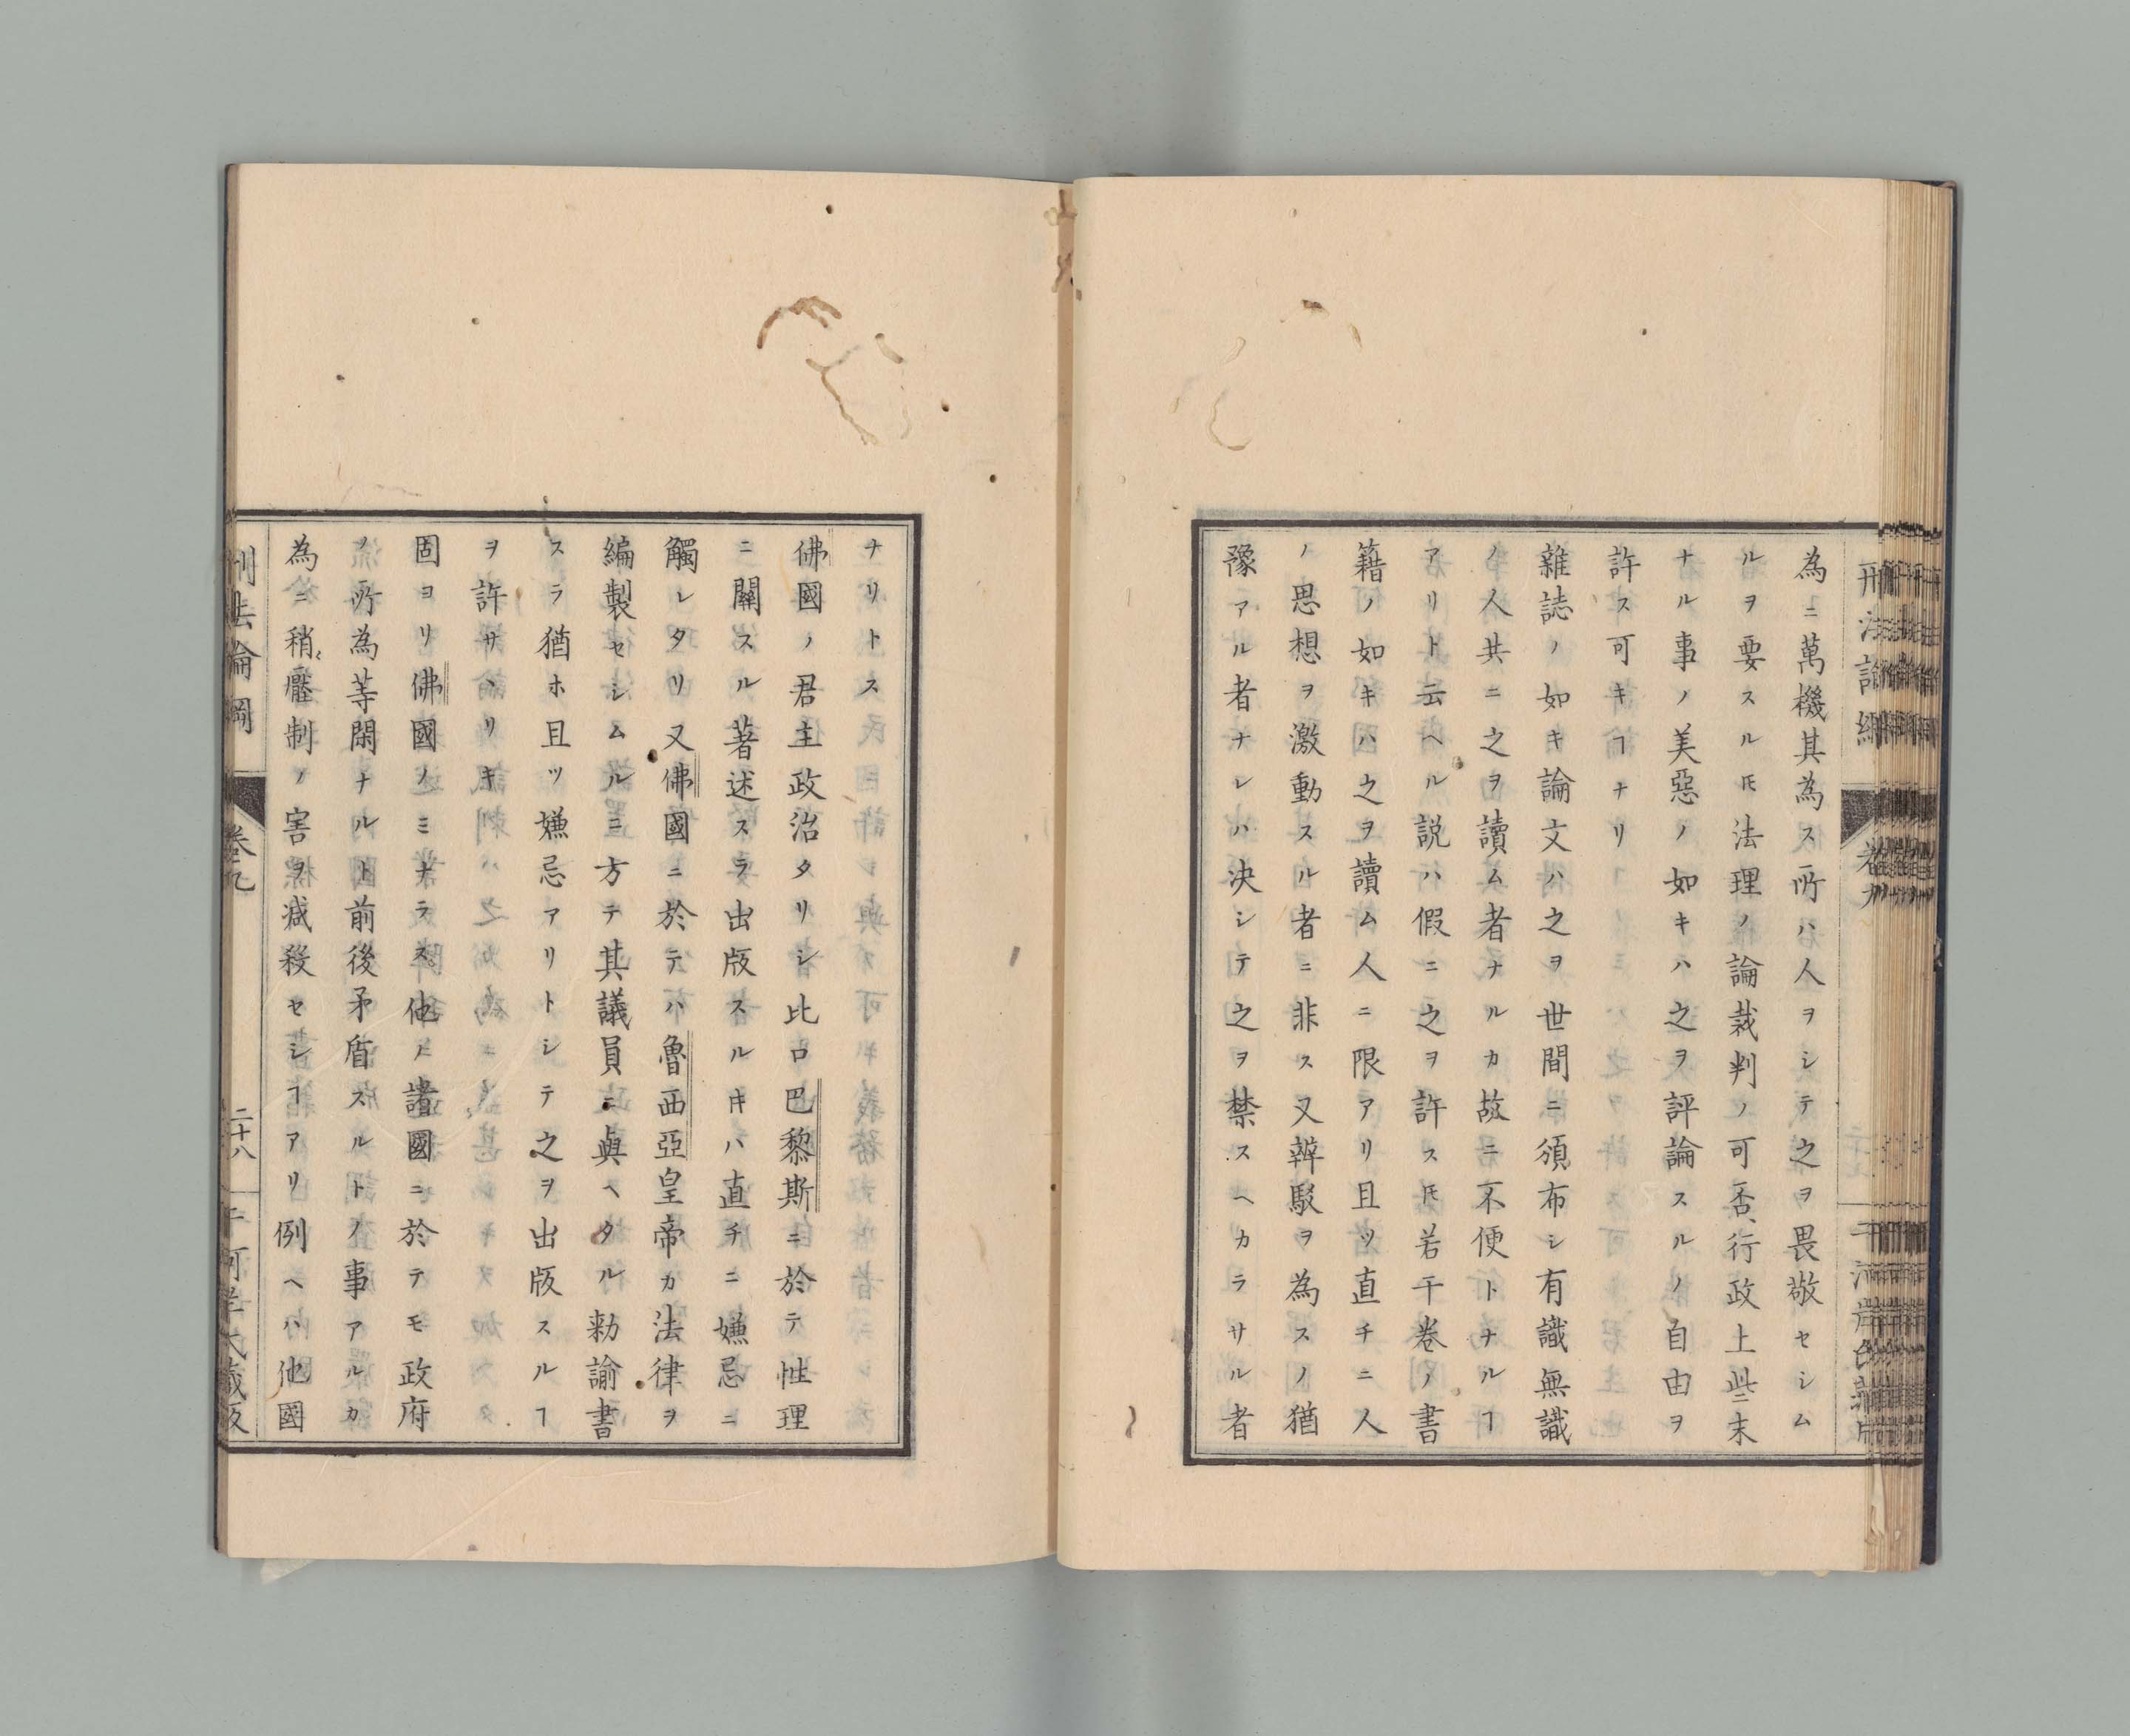 為ニ萬機其為ス所ハ人ヲシテ之ヲ畏敬セシム
ルヲ要スル𪜈法理ノ論裁判ノ可否行政上些末
ナル事ノ美惡ノ如キハ之ヲ評論スルノ自由ヲ
許ス可キヿナリ
雜誌ノ如キ論文ハ之ヲ世間ニ頒布シ有識無識
ノ人共ニ之ヲ讀ム者ナルカ故ニ不便トナルヿ
アリト云ヘル説ハ假ニ之ヲ許ス𪜈若干卷ノ書
籍ノ如キハ之ヲ讀ム人ニ限アリ且ツ直チニ人
ノ思想ヲ激動スル者ニ非ス又辨駁ヲ為スノ猶
豫アル者ナレハ決シテ之ヲ禁スヘカラサル者
ナリトス
佛國ノ君主政治タリシ比ロ巴黎斯ニ於テ性理
ニ關スル著述スラ出版スルキハ直チニ嫌忌ニ
觸レタリ又佛國ニ於テハ魯西亞皇帝カ法律ヲ
編製セシムルニ方テ其議員ニ與ヘタル勅諭書
スラ猶ホ且ツ嫌忌アリトシテ之ヲ出版スルヿ
ヲ許サヽリキ
固ヨリ佛國ノミナラス他ノ諸國ニ於テモ政府
ノ所為等閑ナルト前後矛盾スルトノ事アルカ
為ニ稍壓制ノ害ヲ減殺セシヿアリ例ヘハ他國
刑法論綱
卷九
二十八